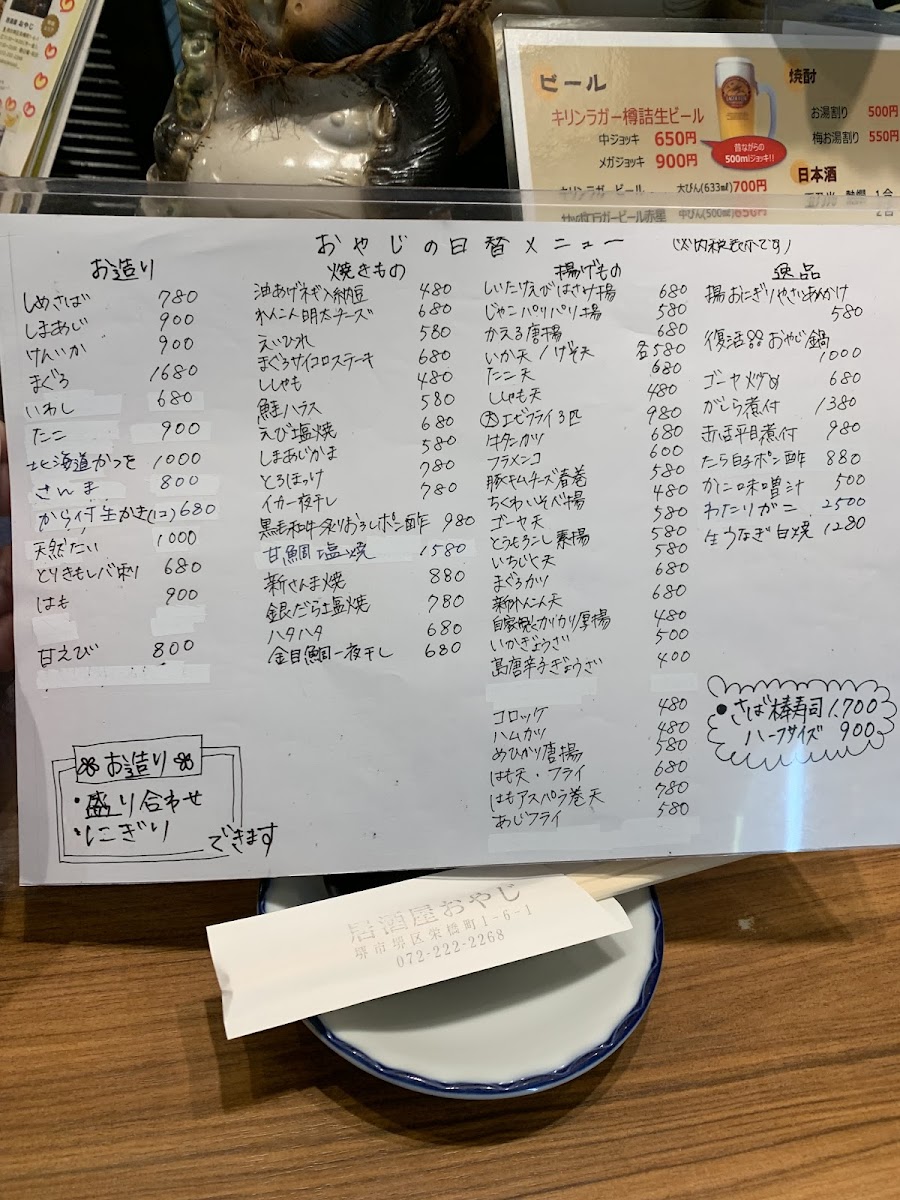 ビール
キリンラガー樽詰生ビール
中ジョッキ 650円
メガジョッキ 900円
昔ながらの
500mlジョッキ!!
キリンラガービール 大びん(633ml)700円
中びん(500ml)650円
焼酎
お湯割り 500円
梅お湯割り 550円
日本酒
おやじの日替メニュー (※内税表示です)
お造り
しめさば 780
しまあじ 900
けんいか 900
まぐろ 1680
いわし 680
たこ 900
北海道かつを 1000
さんま 800
から付生かき(1コ) 680
天然たい 1000
とりきもレバ刺 680
はも 900
甘えび 800
お造り
・盛り合わせ
・にぎり
できます
焼きもの
油あげネギ入納豆 480
れんこん明太チーズ 680
えいひれ 580
まぐろサイコロステーキ 680
ししゃも 480
鮭ハラス 580
えび塩焼 680
しまあじかま 580
とろほっけ 780
イカ一夜干し 780
黒毛和牛炙りおろしポン酢 980
甘鯛塩焼 1580
新さんま焼 880
銀だら塩焼 780
ハタハタ 680
金目鯛一夜干し 680
揚げもの
しいたけえびはさみ揚 680
じゃこパリパリ揚 580
かえる唐揚 680
いか天/げそ天 各580
たこ天 680
ししゃも天 480
大エビフライ3匹 980
牛タンカツ 680
フラメンコ 600
豚キムチーズ春巻 580
ちくわいそべ揚 480
ゴーヤ天 580
とうもろこし素揚 580
いちじく天 580
まぐろカツ 680
新れんこん天 680
自家製カリカリ厚揚 480
いかぎょうざ 500
島唐辛子ぎょうざ 400
コロッケ 480
ハムカツ 480
めひかり唐揚 580
はも天・フライ 680
はもアスパラ巻天 780
あじフライ 580
逸品
揚おにぎりやさいあんかけ
580
復活 おやじ鍋
1000
ゴーヤ炒め 680
がしら煮付 1380
赤舌平目煮付 980
たら白子ポン酢 880
かに味噌汁 500
わたりがに 2500
生うなぎ白焼 1280
●さば棒寿司 1.700
ハーフサイズ 900
居酒屋おやじ
堺市堺区栄橋町1-6-1
072-222-2268